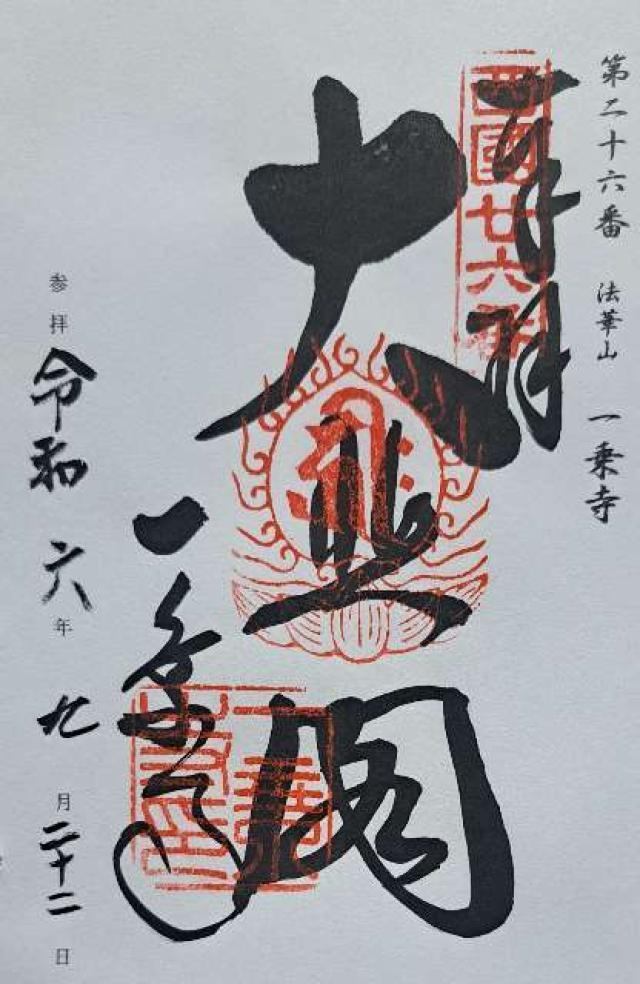 第二十六番 法華山 一乗寺
奉拝
西國廿六番
大悲閣
一乗寺
参拝 令和六年九月二十二日